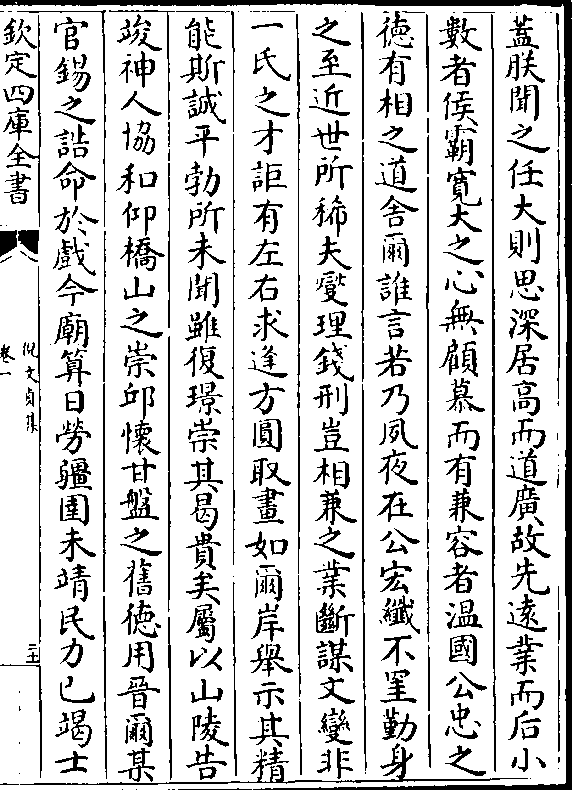 蓋朕聞之任大則思深居高而道廣故先遠業而后小
數者侯霸寛大之心無顧慕而有兼容者温國公忠之
徳有相之道舍爾誰言若乃夙夜在公宏纖不罣勤身
之至近世所稀夫燮理錢刑豈相兼之業斷謀文變非
一氏之才詎有左右求逢方圓取畫如爾岸舉示其精
能斯誠平勃所未聞雖復璟崇其曷貴矣屬以山陵告
竣神人協和仰橋山之崇邱懷甘盤之舊徳用晉爾某
官錫之誥命於戲今廟算日勞疆圉未靖民力已竭士
欽定四庫全書
倪文貞集
卷一